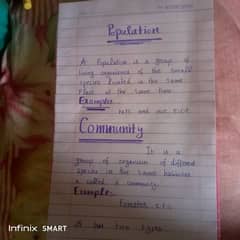 Population
A Population is a group of
living organisms of the small
species located in the same
Place at the same time
Example
rats and
Community
It is a
group of organism of different
species in the same
is called a community.
Example.
etc.
It has two types
Infinix SMART